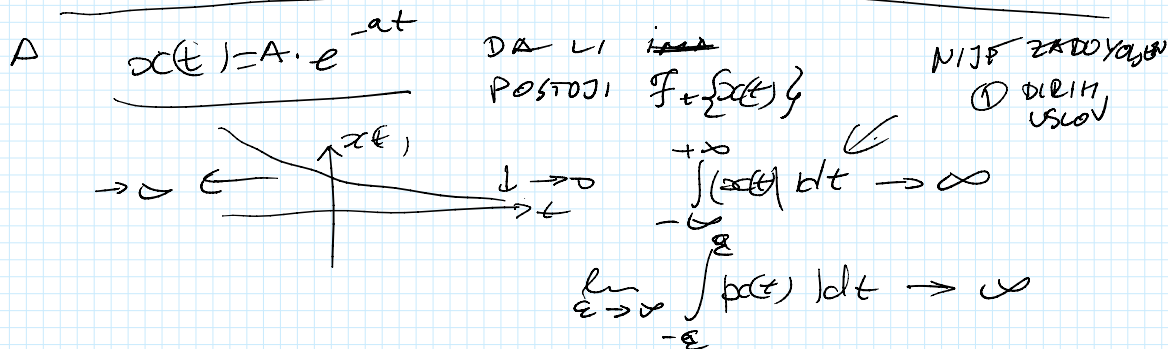 A
x(t)=A·e^{-at}
DA LI
POSTOJI F_t{x(t)}
NIJE ZADOVOLJEN
① DIRIH
USLOV
x(t)
→∞ ←
↓ →0
→ t
∫_{-∞}^{+∞} |x(t)| dt → ∞
lim_{ε→∞} ∫_{-ε}^{ε} |x(t)| dt → ∞